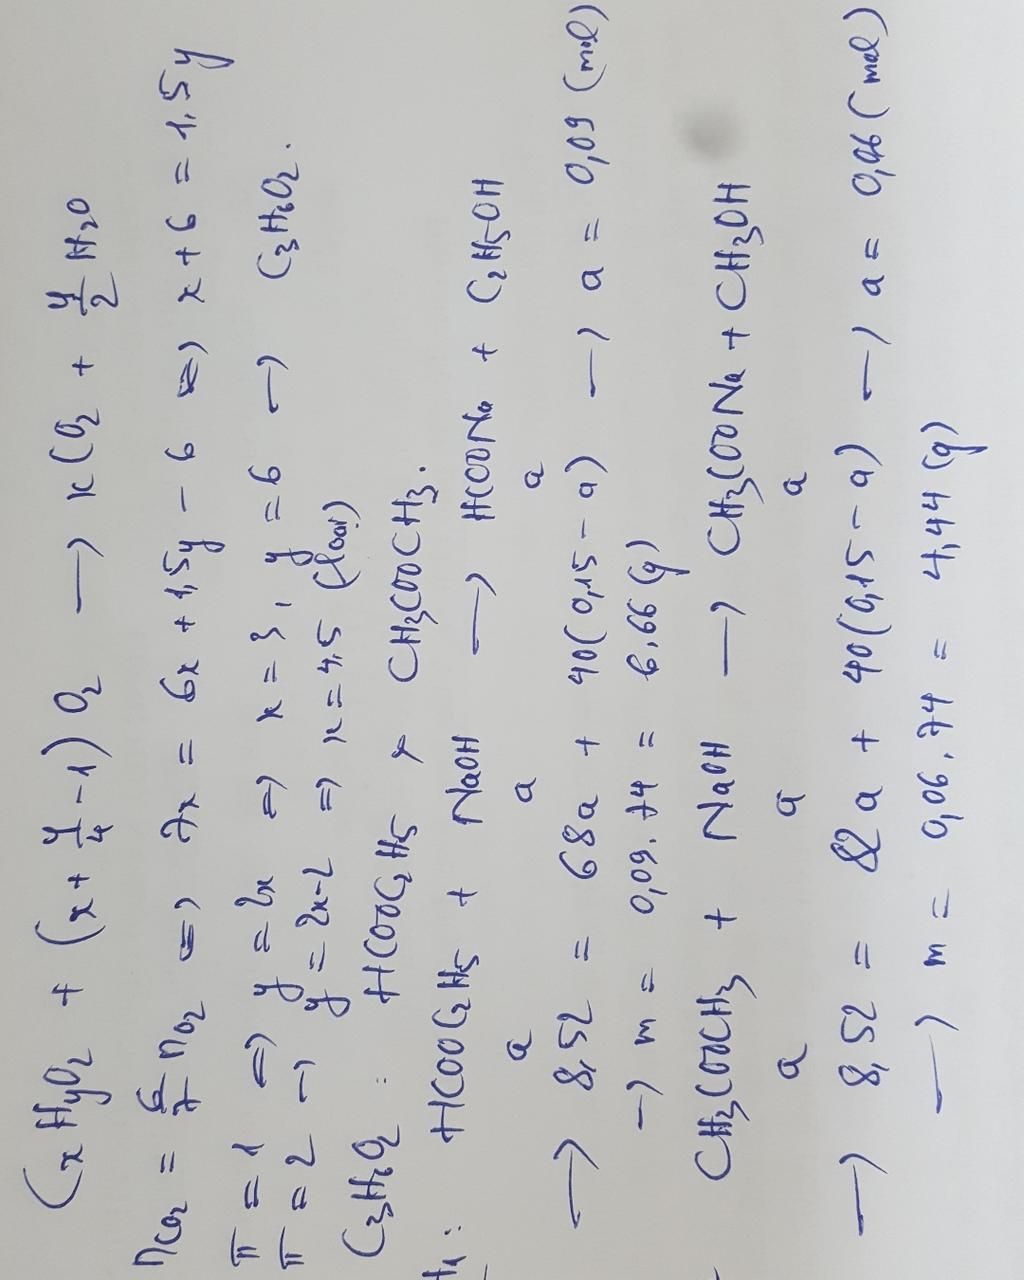 CxHyO2 + (x + y/4 - 1) O2 → xCO2 + y/2 H2O
nCO2 = 6/7 nO2 ⇔ 7x = 6x + 1,5y - 6 ⇔ x + 6 = 1,5y
π = 1 ⇒ y = 2x ⇒ x = 3, y = 6 → C3H6O2.
π = 2 → y = 2x-2 ⇒ x = 4,5 (loại)
C3H6O2 : HCOOC2H5, CH3COOCH3.
H1: HCOOC2H5 + NaOH → HCOONa + C2H5OH
a a a
→ 8,52 = 68a + 40(0,15 - a) → a = 0,09 (mol)
→ m = 0,09.74 = 6,66 (g)
CH3COOCH3 + NaOH → CH3COONa + CH3OH
a a a
→ 8,52 = 82a + 40(0,15 - a) → a = 0,06 (mol)
→ m = 0,06.74 = 4,44 (g)